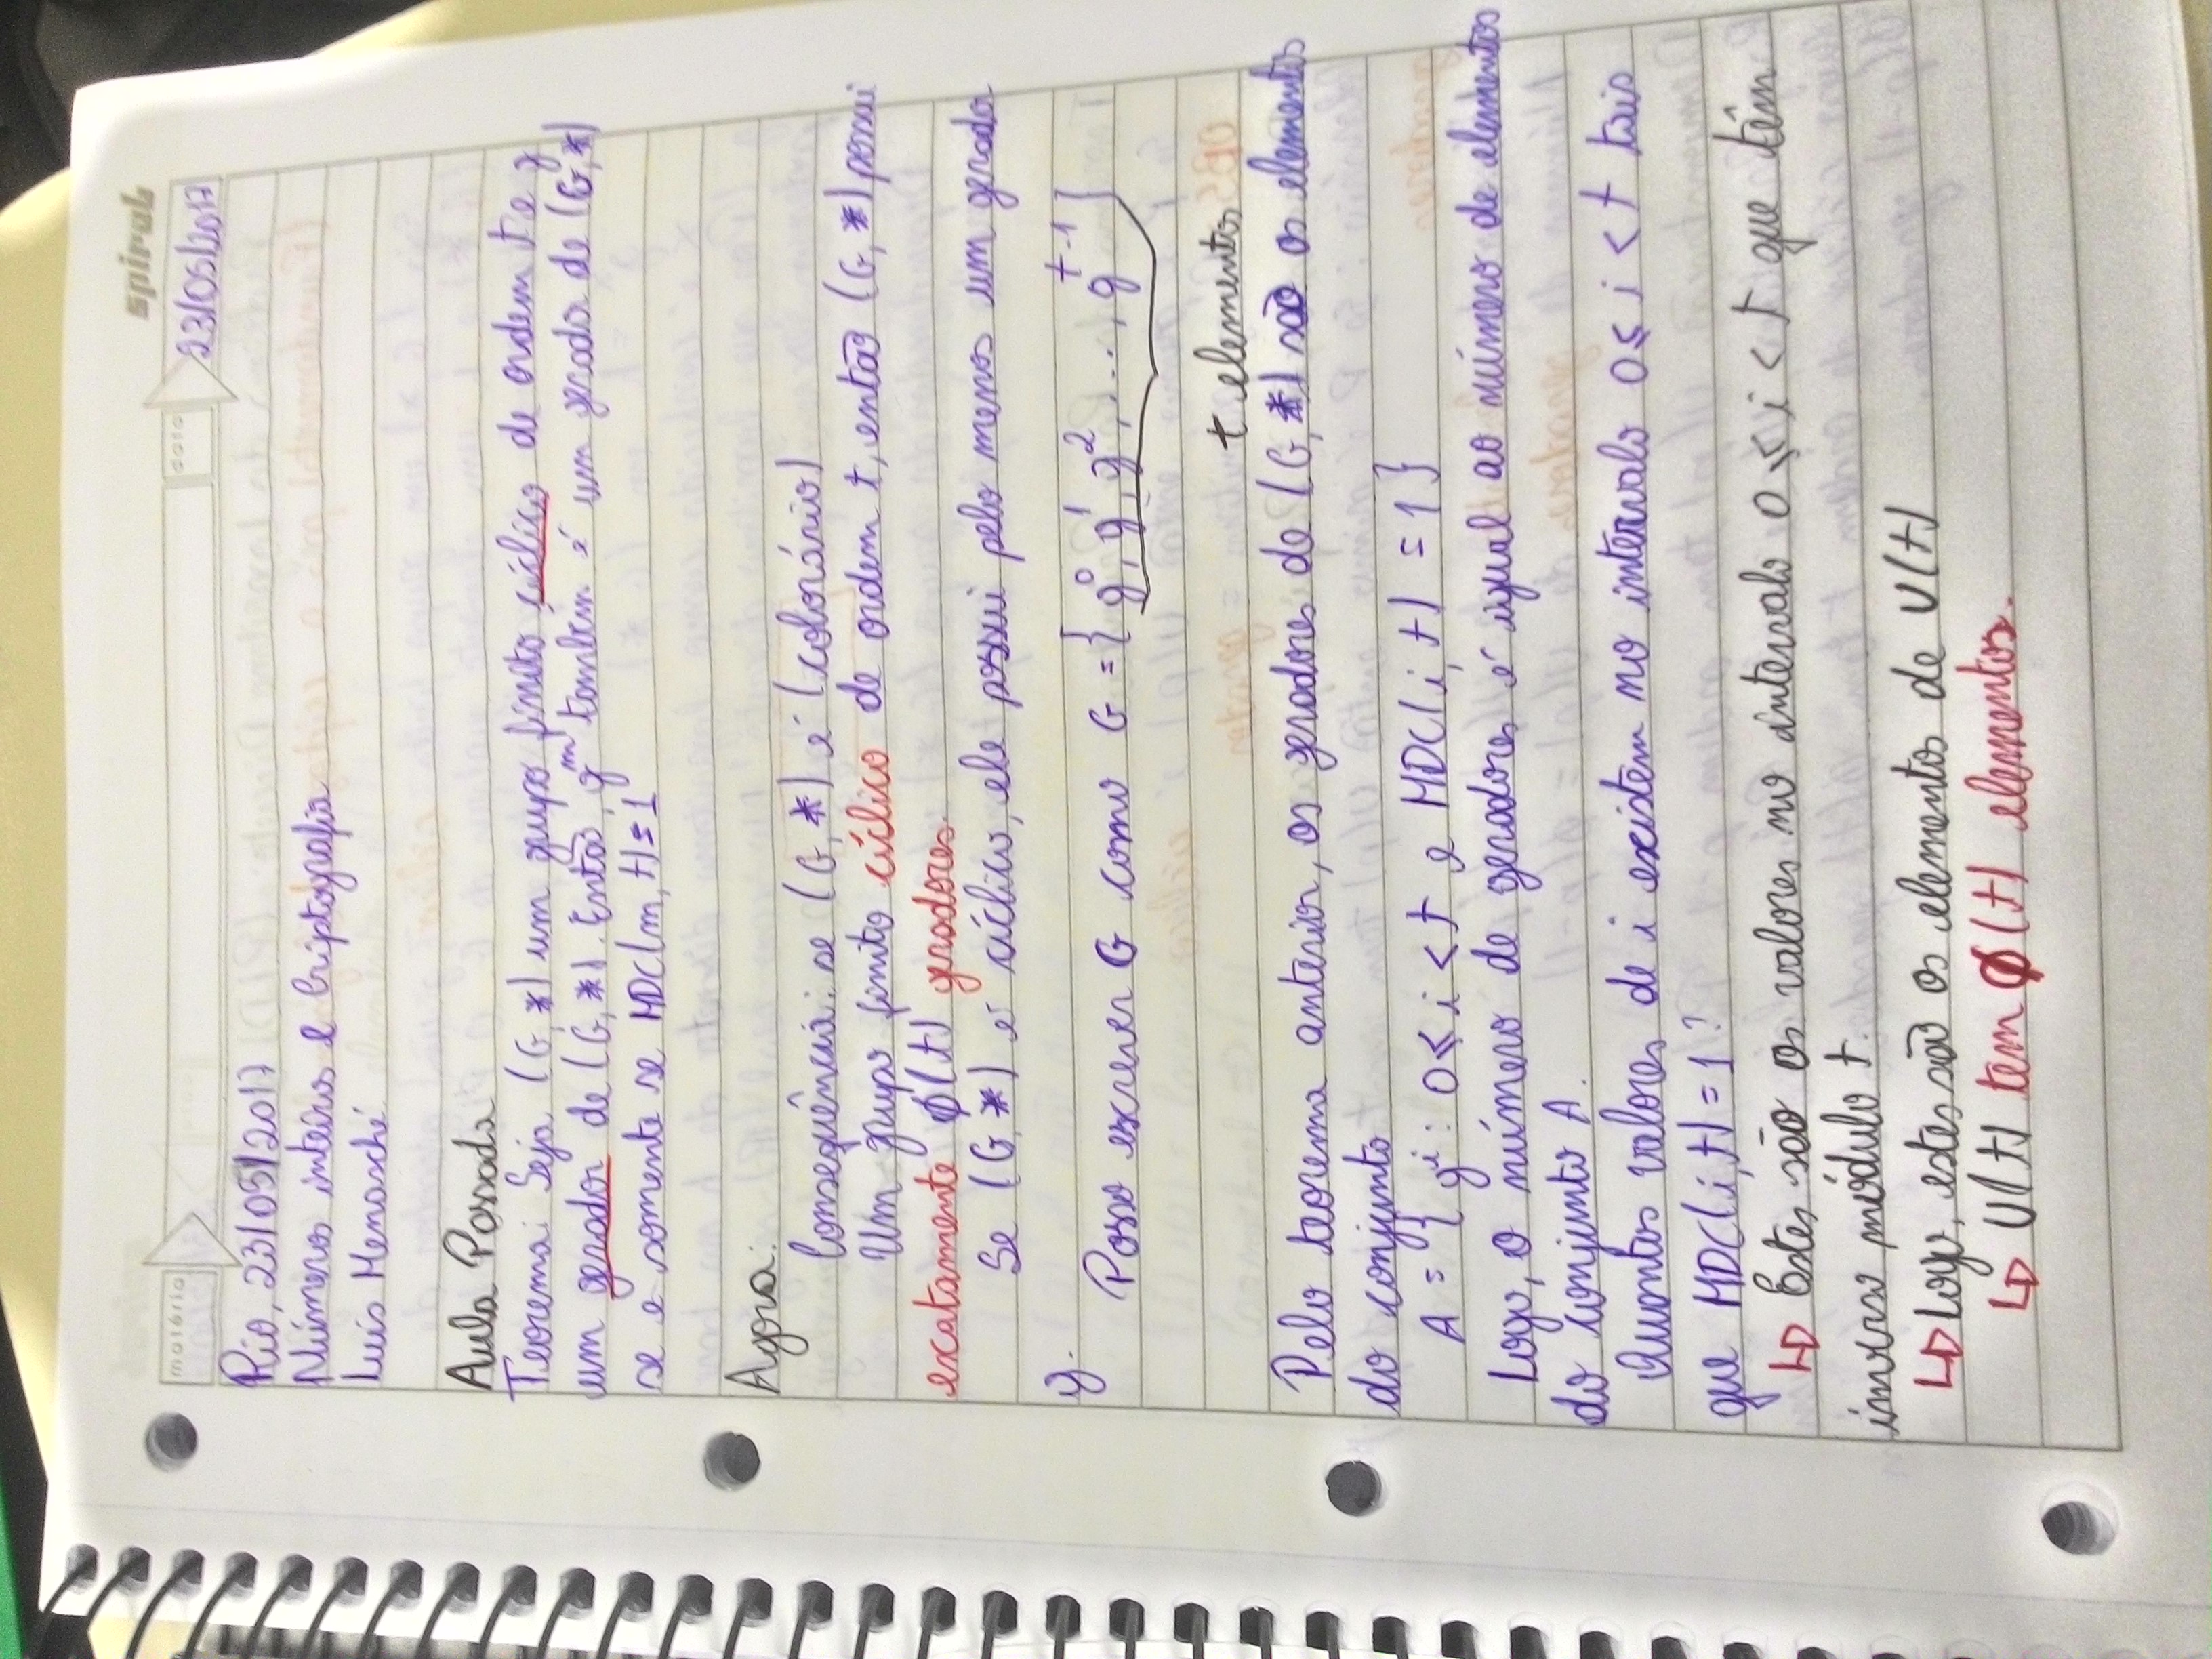 spiral
matéria
data
23/05/2017
Rio, 23/05/2017
Números inteiros e Criptografia
Luis Menasché
Aula Passada
Teorema: Seja (G,*) um grupo finito cíclico de ordem t e g
um gerador de (G,*). Então, g^m também é um gerador de (G,*)
se e somente se MDC(m,t)=1
Agora:
Consequência: se (G,*) é (colorário)
Um grupo finito cíclico de ordem t, então (G,*) possui
exatamente ϕ(t) geradores.
Se (G,*) é cíclico, ele possui pelo menos um gerador
g.
Posso escrever G como G = {g^0, g^1, g^2, ..., g^t-1}
t elementos
Pelo teorema anterior, os geradores de (G,*) são os elementos
do conjunto
A = {g^i : 0 ≤ i < t e MDC(i,t) = 1}
Logo, o número de geradores é igual ao número de elementos
do conjunto A.
Quantos valores de i existem no intervalo 0 ≤ i < t tais
que MDC(i,t) = 1?
↳ Estes são os valores no intervalo 0 ≤ i < t que têm
inverso módulo t.
↳ Logo, estes são os elementos de U(t)
↳ U(t) tem ϕ(t) elementos.